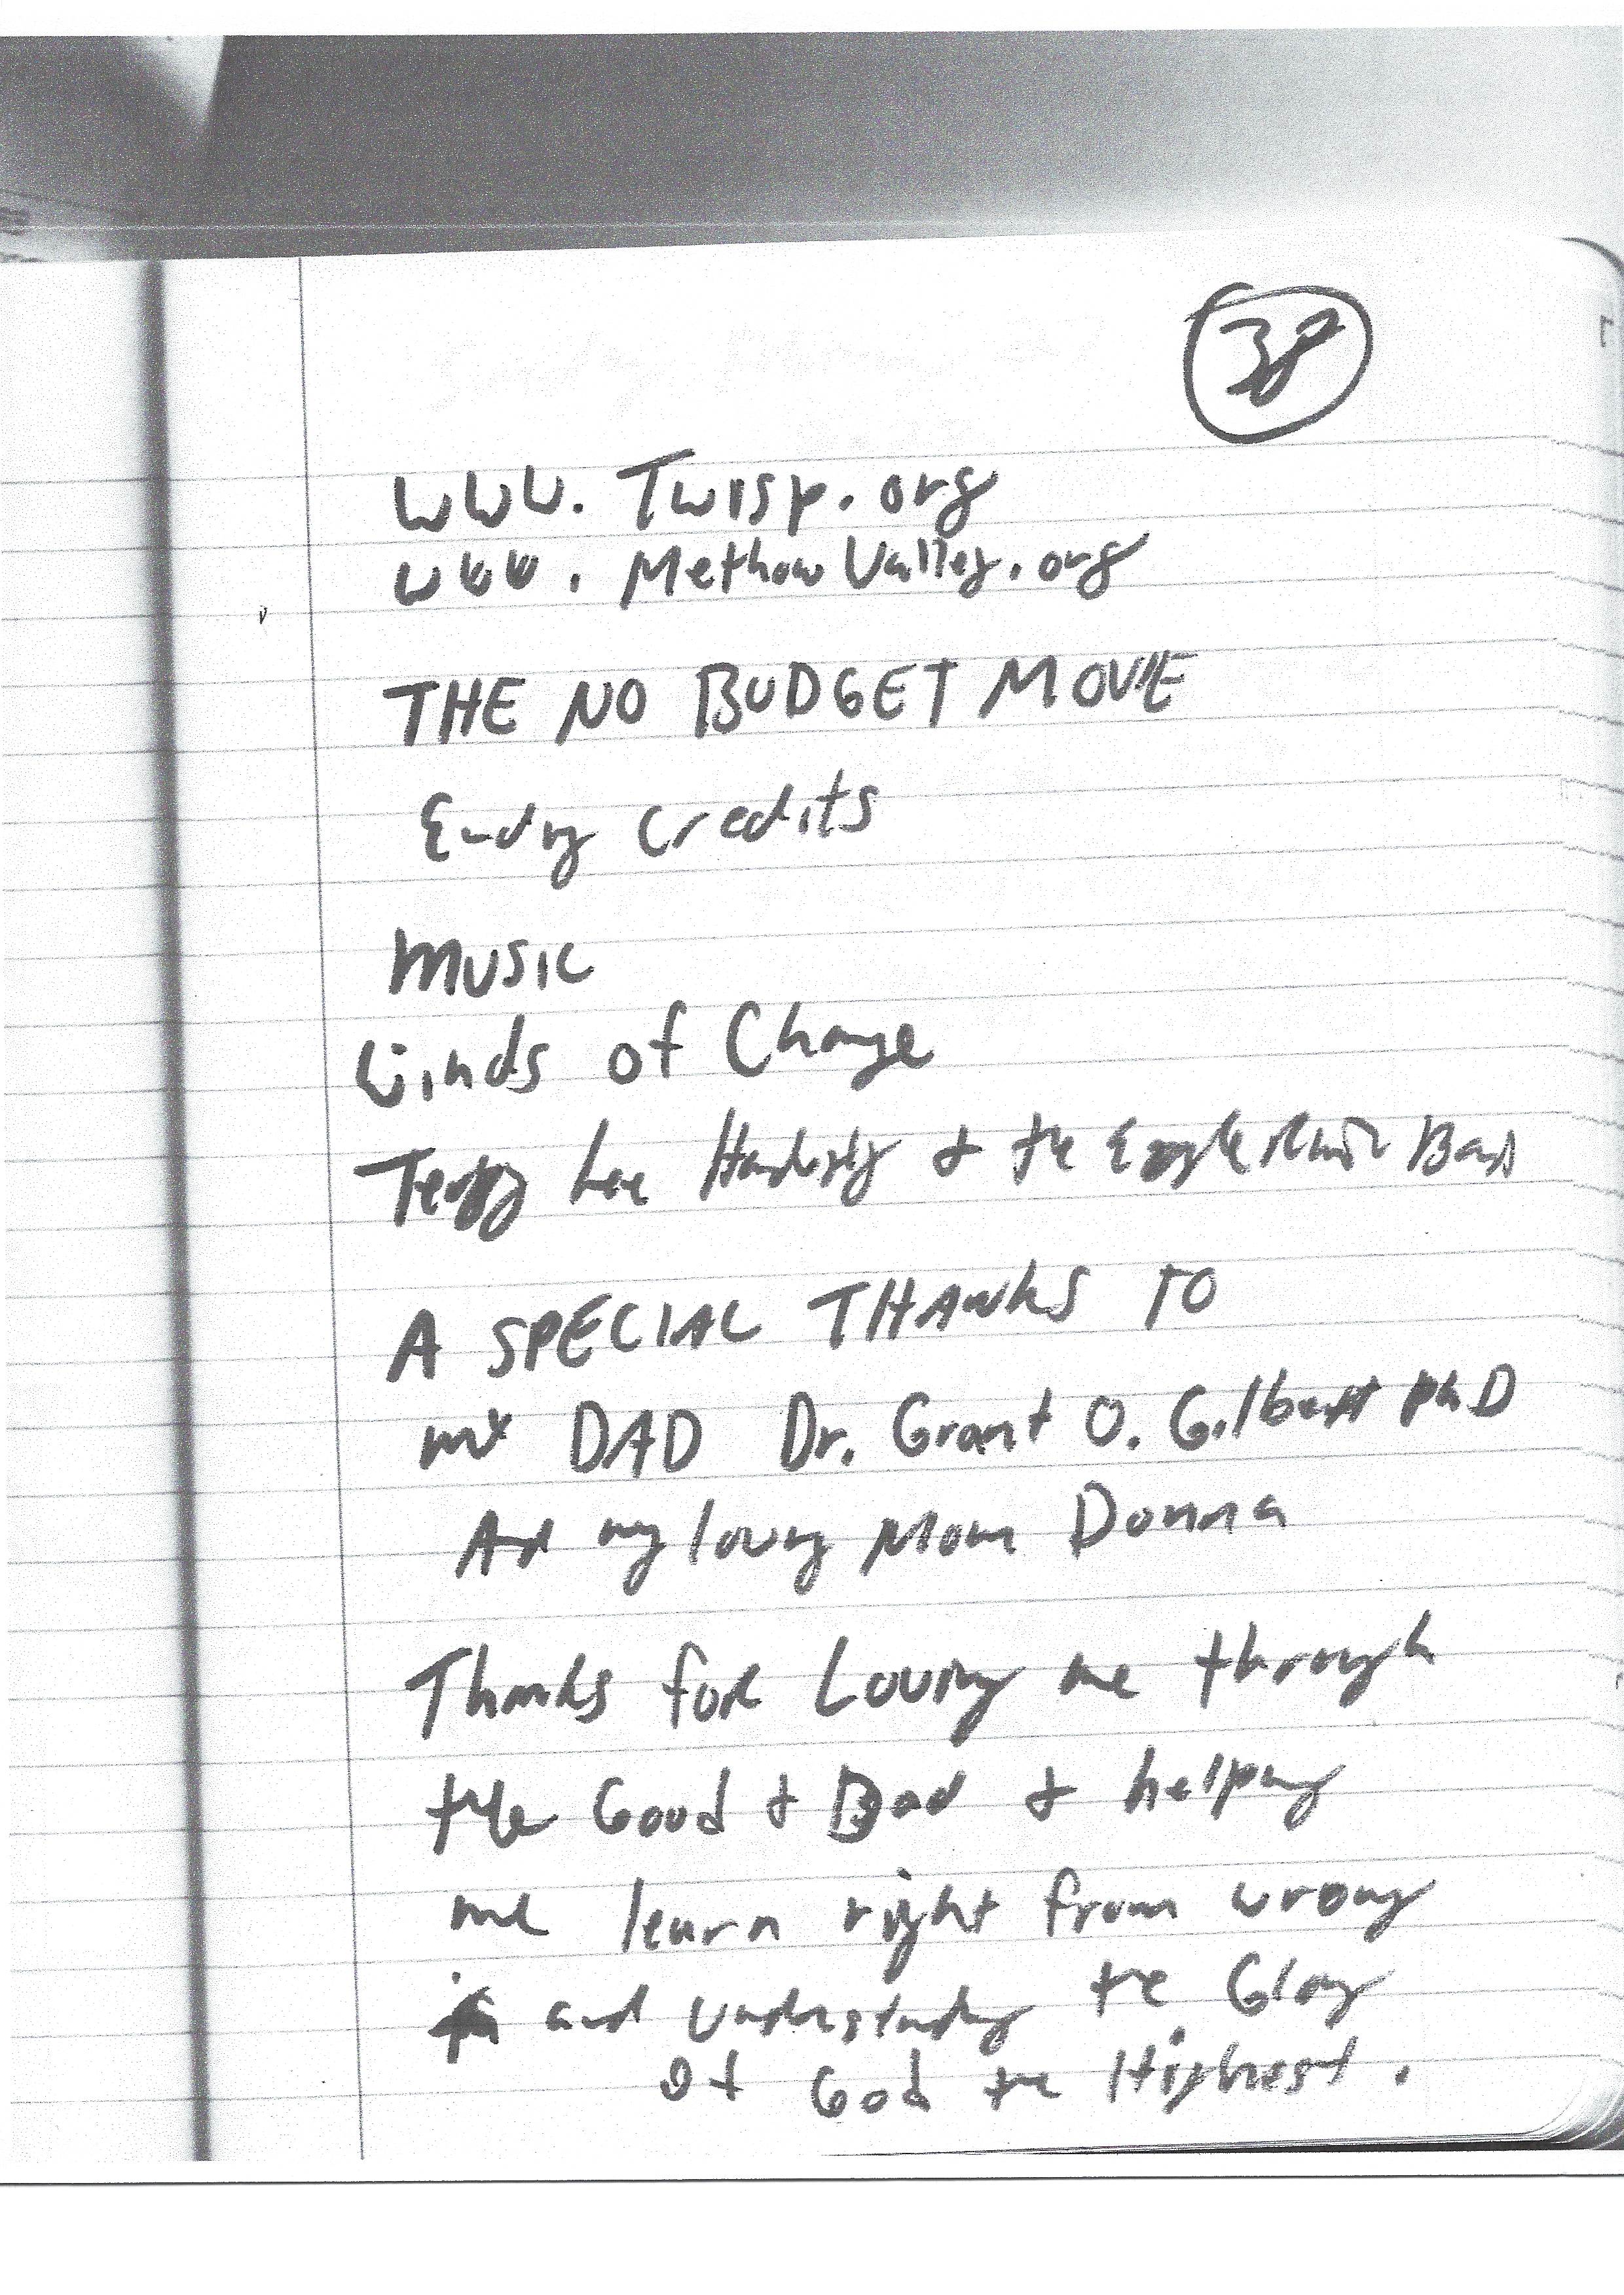 38
www. Twisp. org
www. Methow Valley. org
THE NO BUDGET MOVIE
Ending Credits
MUSIC
Winds of Change
Terry Lee Hardesty & the Eagle Band
A SPECIAL THANKS TO
MY DAD Dr. Grant O. Gilbert PhD
And my loving Mom Donna
Thanks for Loving me through
the Good & Bad & helping
me learn right from wrong
and understanding the Glory
of God the Highest.